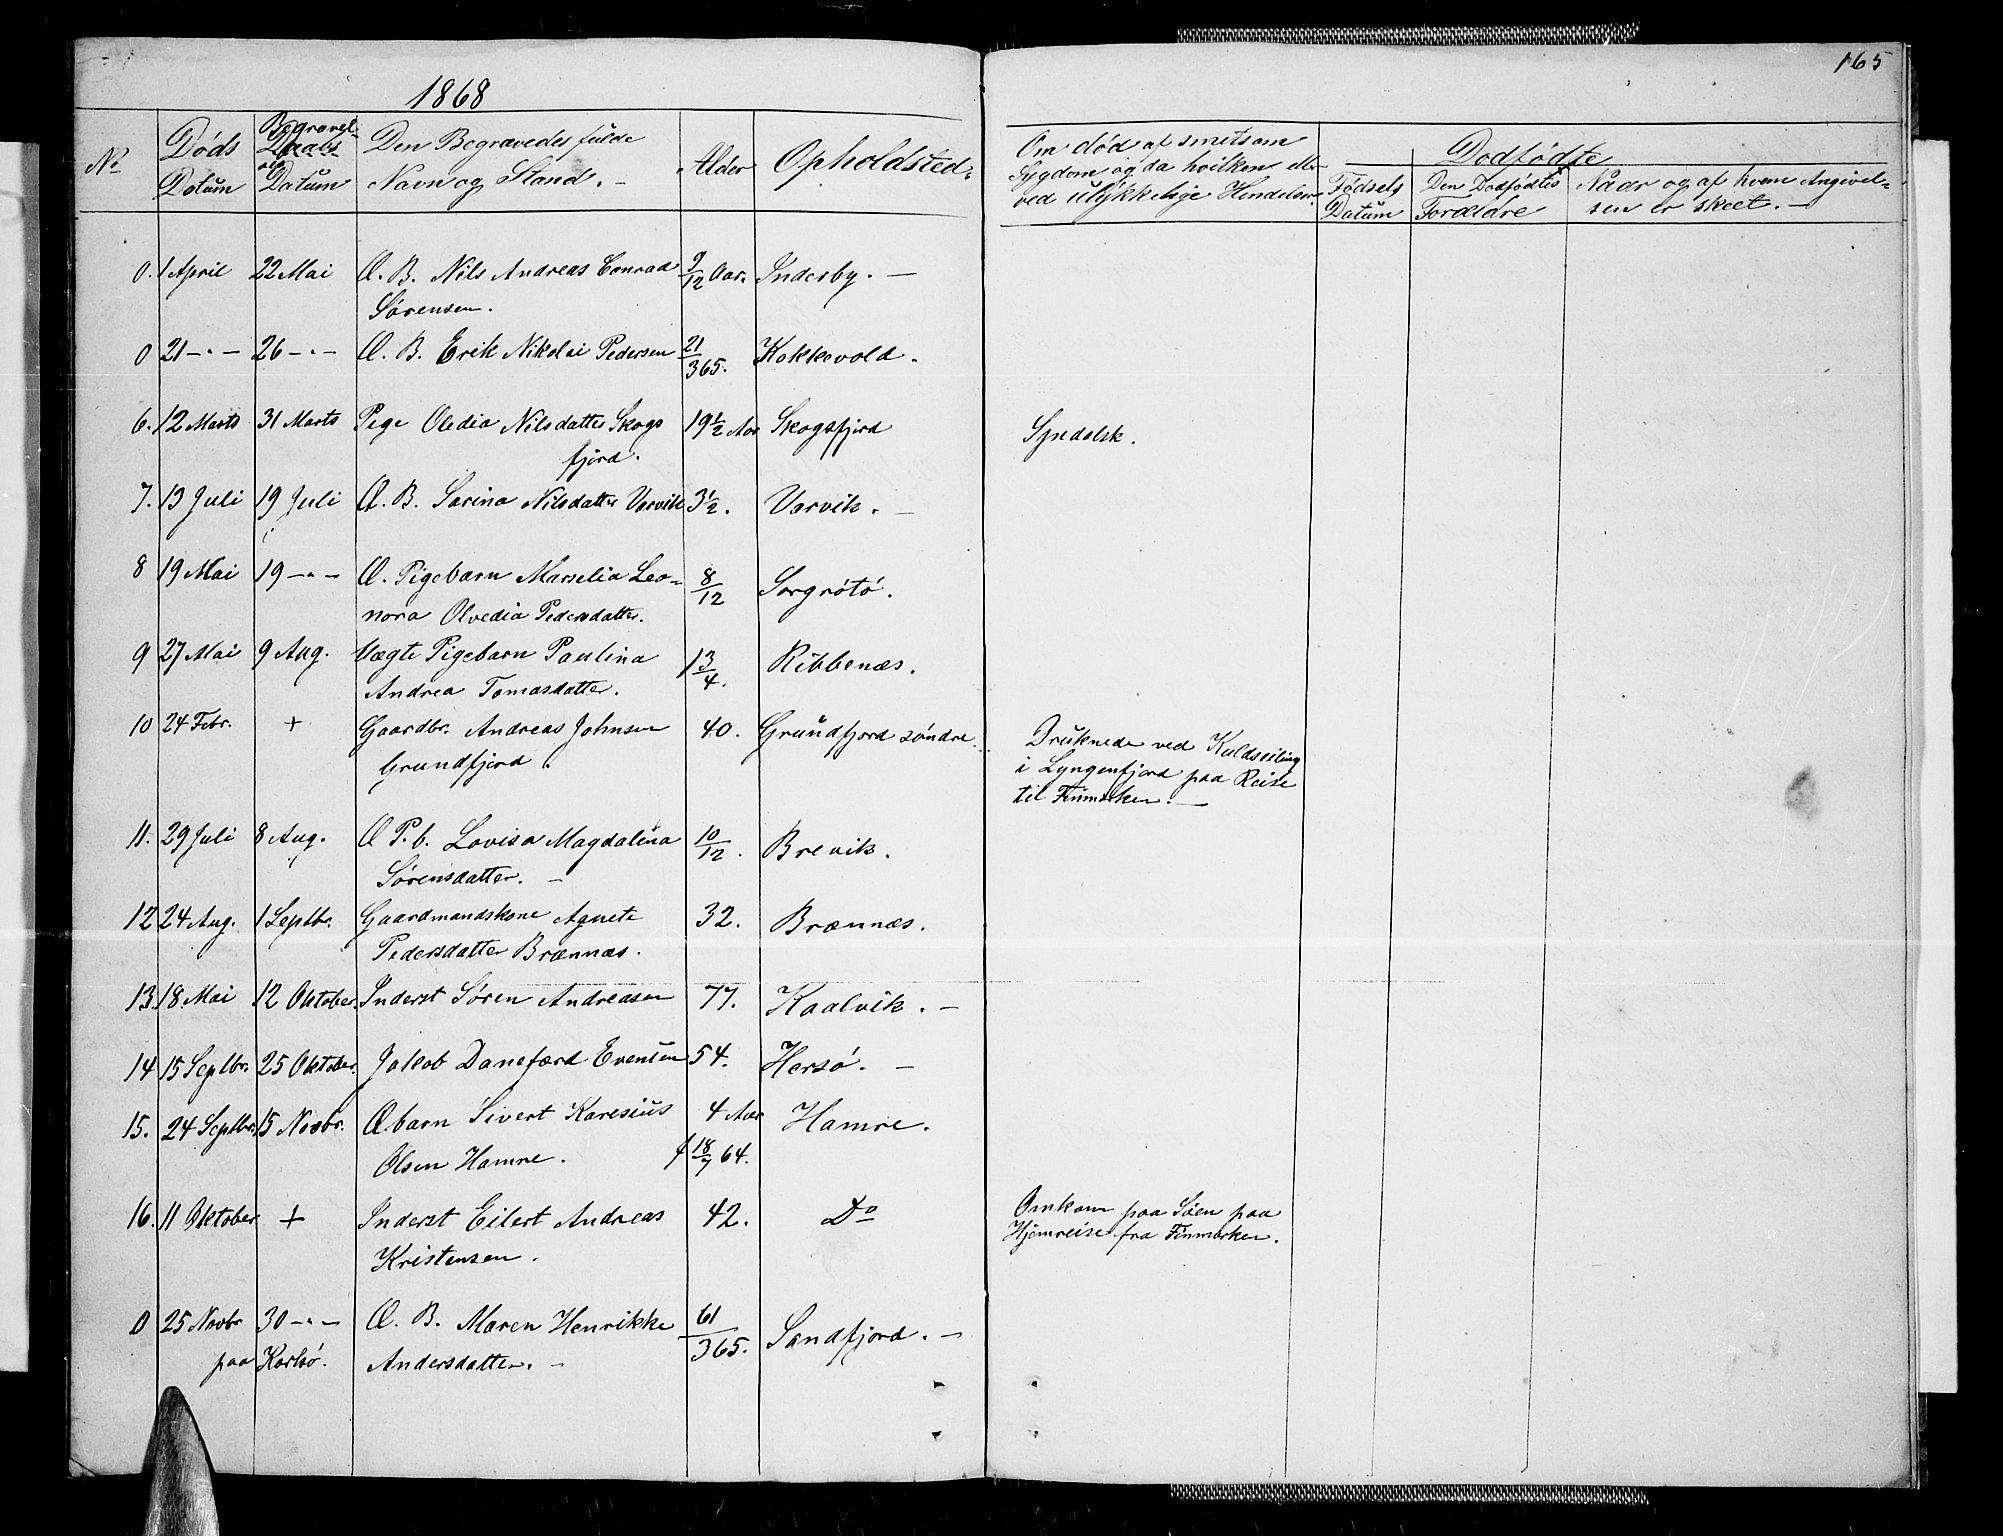 165
1868
No
Døds
Datum
Begravel-
Daabs
Datum
Den Begravedes fulde
Navn og Stand. -
Alder
Opholdsted.
Om død af smitsom
Sygdom og da hvilken ell.
ved ulykkelige Hendelser.
Dodfødte
Fødsels
Datum
Den Dodfødtes
Forældre
Naar og af hvem Angivel-
sen er skeet. -
0. 1 April 22 Mai Æ. B. Nils Andreas Conrad 9/12 Aar. Inderby. -
Sørensen.
0 21 -"- 26 -"- Æ. B. Erik Nikolai Pedersen 21/365. Kokkevold.
6. 12 Marts 31 Marts Pige Oledia Nilsdatter Skogs 19½ Aar Skogsfjord Spedalsk.
fjord.
7. 13 Juli 19 Juli Æ. B. Sarina Nilsdatter Vorvik 3½. Vorvik. -
8 19 Mai 19 -"- Æ. Pigebarn Marselia Leo- 8/12 Sorgrøtø.
nora Olvedia Pedersdatter.
9 27 Mai 9 Aug. Uægte Pigebarn Paulina 1 3/4. Ribbenæs.
Andrea Tomasdatter.
10 24 Febr. + Gaardbr. Andreas Johnsen 40. Grundfjord søndre.
Grundfjord.
Druknede ved Kuldseiling
i Lyngenfjord paa Reise
til Finmarken. -
11. 29 Juli 8 Aug. Æ P. b. Lovisa Magdalena 10/12. Brevik.
Sørensdatter. -
12 24 Aug. 1 Septbr. Gaardmandskone Agnete 32. Brænnæs.
Pedersdatter Brænnæs.
13. 18 Mai 12 Oktober. Inderst Søren Andreasen 77. Kaalvik. -
14 15 Septbr. 25 Oktober. Jakob Danefærd Evensen 54. Hersø. -
15. 24 Septbr. 15 Novbr. Æ.barn Sivert Karesius 4 Aar Hamre.
Olsen Hamre. f 18/7 64.
16. 11 Oktober + Inderst Eilert Andreas 42. Do
Kristensen.
Omkom paa Søen paa
Hjemreise fra Finmarken.
0 25 Novbr 30 -"- Æ. B. Maren Henrikke 61/365. Sandfjord. -
paa Karlsø. Andersdatter. -